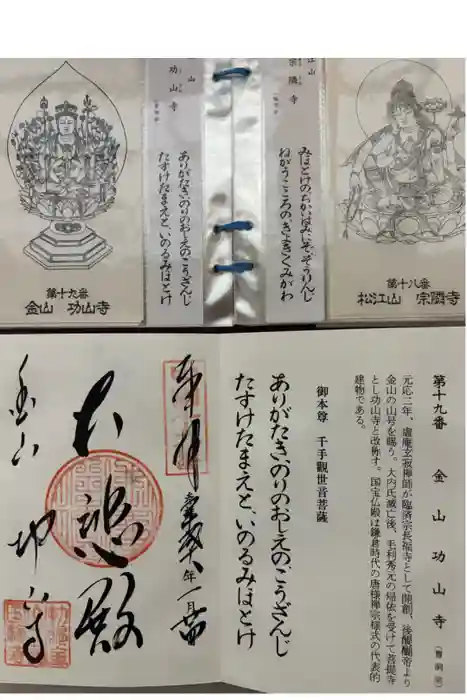 江山
宗隣寺
みほとけのちかいはふかみ
功山寺
ありがたきのりのおしえのこうざんじ
たすけたまえと、いのるみほとけ
第十八番
松江山 宗隣寺
第十九番
金山 功山寺
第十九番 金山 功山寺 (曹洞宗)
元応二年、虚庵玄寂禅師が臨済宗長福寺として開創、後醍醐帝より
金山の山号を賜う。大内氏滅亡後、毛利秀元の帰依を受けて菩提寺
とし功山寺と改称す。国宝仏殿は鎌倉時代の唐様禅宗様式の代表的
建物である。
御本尊 千手観世音菩薩
ありがたきのりのおしえのこうざんじ
たすけたまえと、いのるみほとけ
奉拝
年一月
大悲殿
金山 功山寺